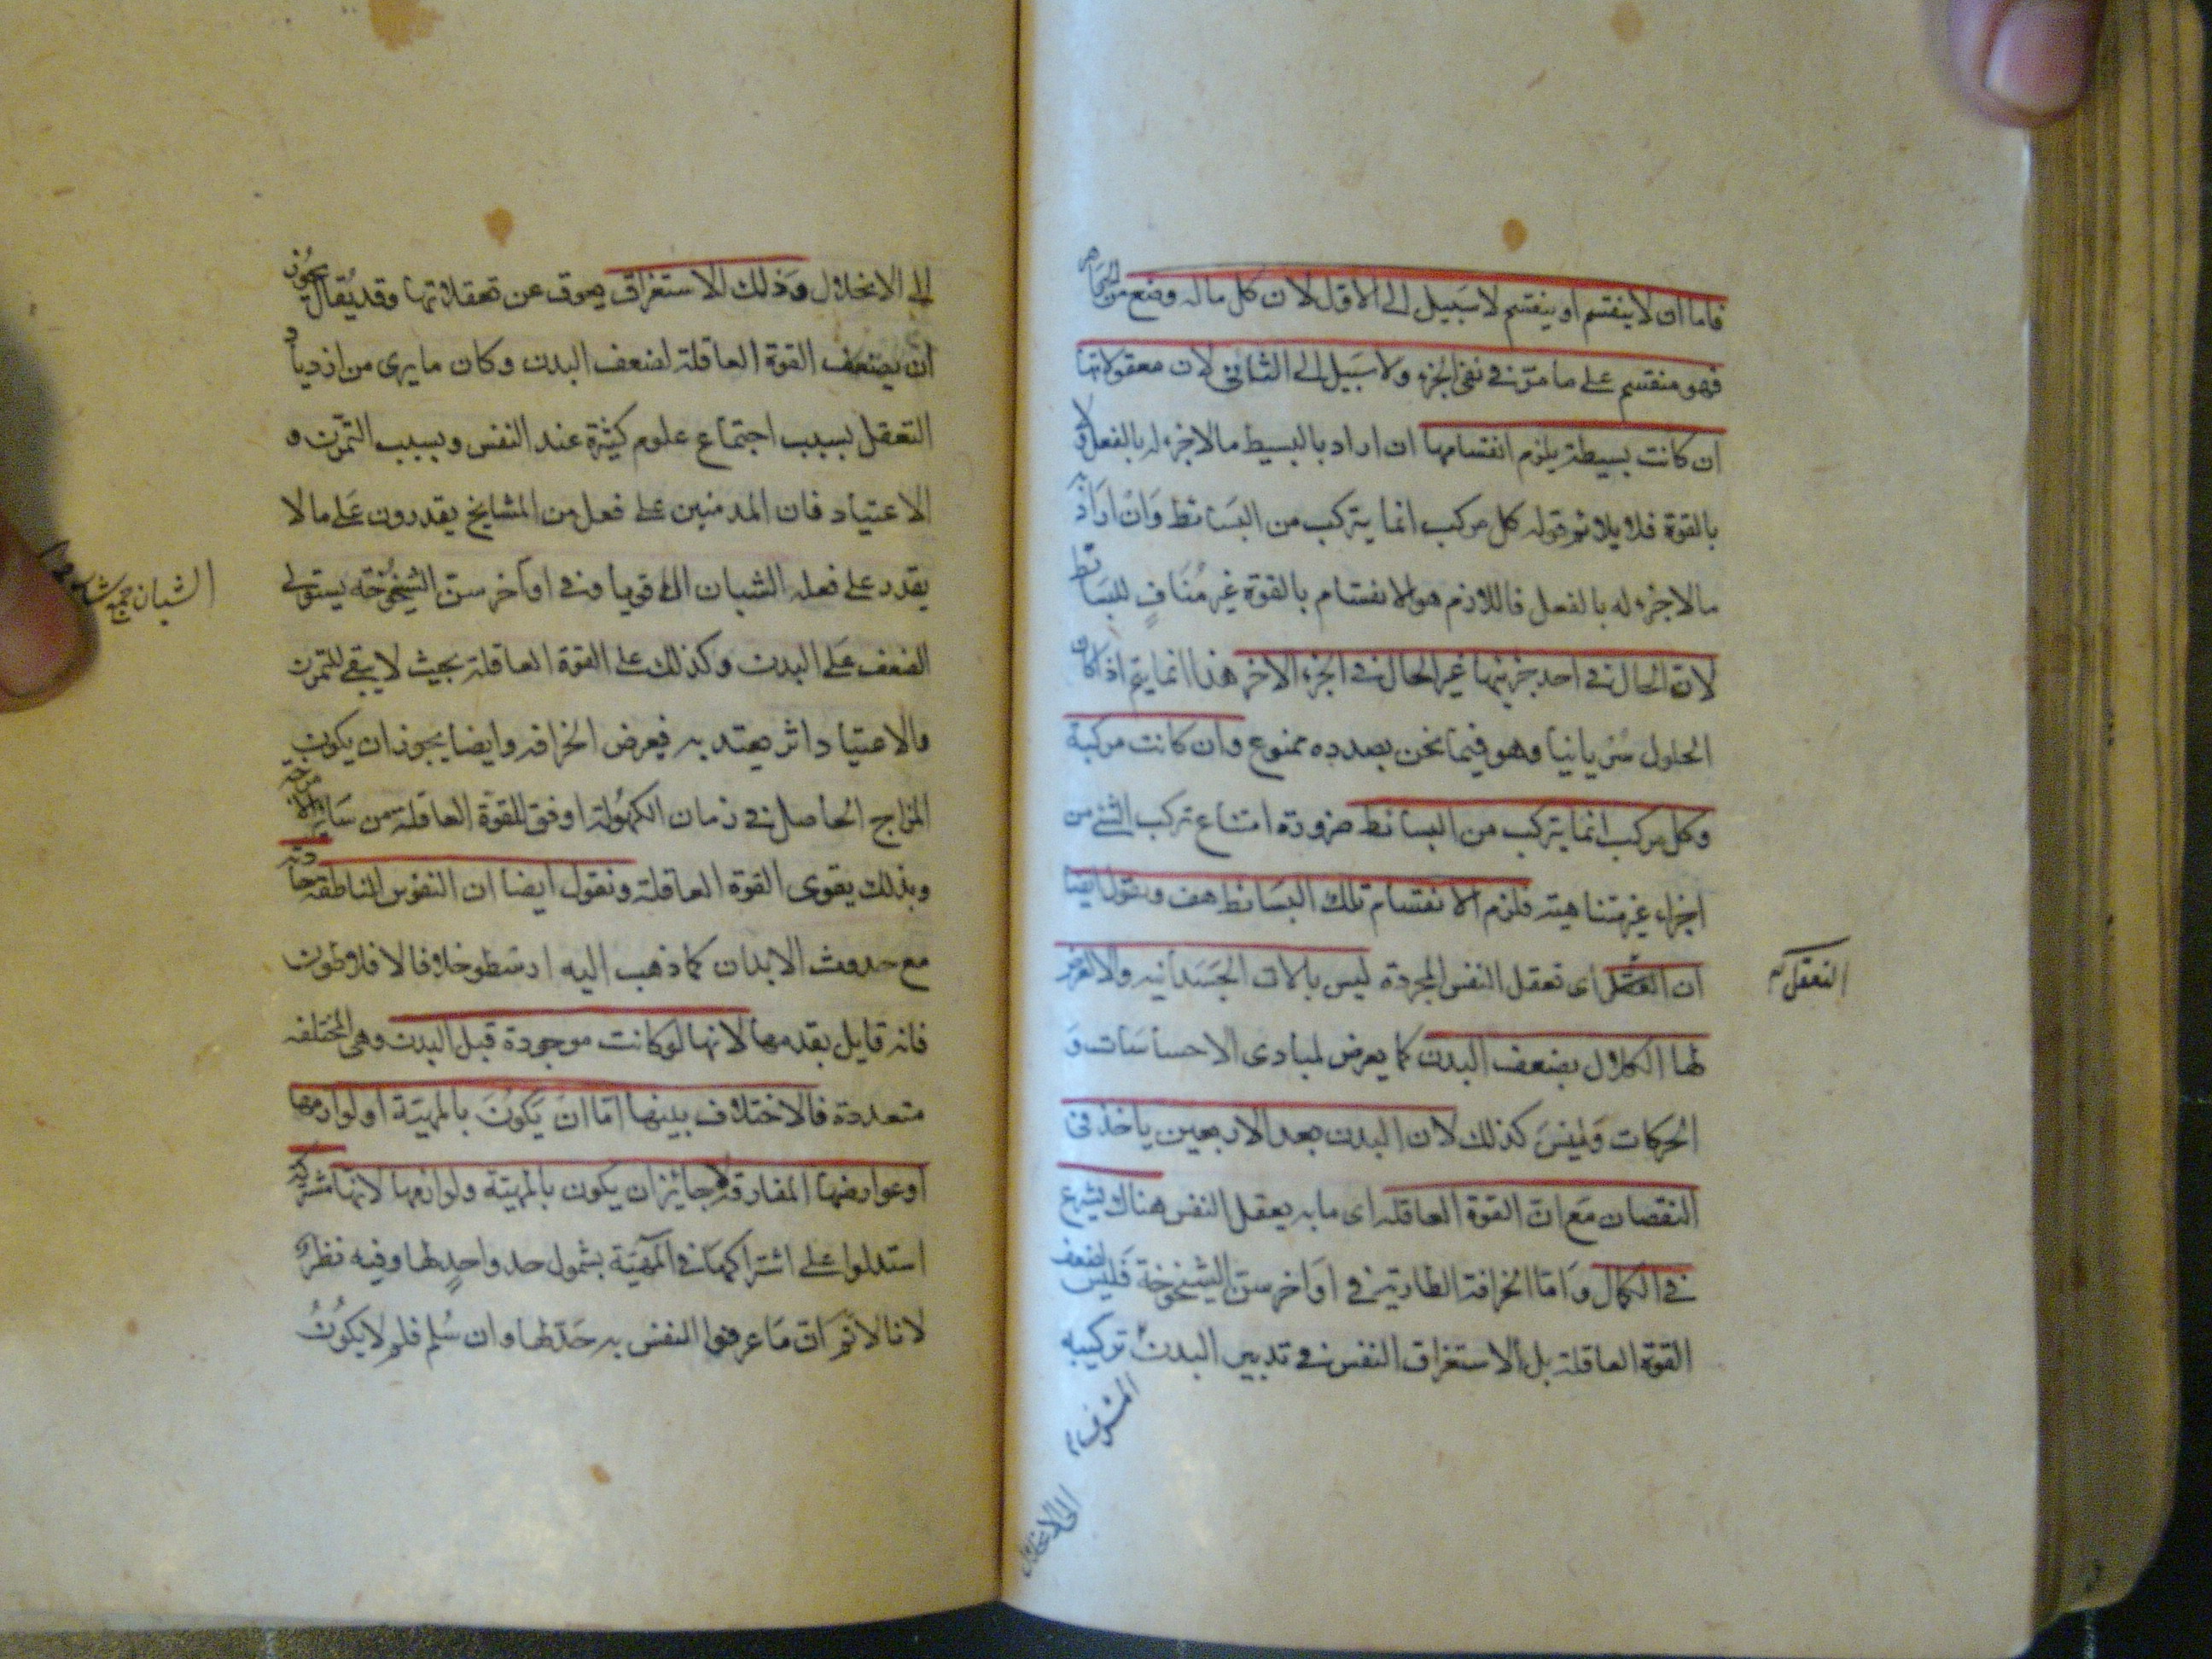 فاما ان لا ينقسم او ينقسم لا سَبيل الى الاول لان كل ماله وضع من الجواهر
فهو منقسم على ما مرّ فى نفى الجزء ولا سَبيل الى الثانى لان معقولاتها
ان كانت بسيطة يلزم انقسامها ان اراد بالبسيط مالا جزء له بالفعل ولا
بالقوة فلا يلائم قوله كل مركب انما يتركب من البسَائط وَان ارَاد به
مالا جزء له بالفعل فاللازم هو الانقسام بالقوة غير مُنَافٍ للبسَائط
لان الحال فى احد جزئيها غير الحال فى الجزء الاخر هذا انما يتم اذا كان
الحلول سَرَيانيا وهو فيما نحن بصدده ممنوع وان كانت مركبة
وكل مركب انما يتركب من البسائط ضرورة امتناع تركب الشئ من
اجزاء غير متناهية فلزم الانقسام تلك البسَائط هف ونقول ايضا
ان التعقل اى تعقل النفس المجردة ليس بالات الجسَدانيه والا لعرض
لها الكلال بضعف البدن كما يعرض لمبادى الاحساسَات وَ
الحركات وَليسَ كذلك لان البدن بعد الاربعين ياخذ فى
النقصان مَع ان القوة العاقله اى ما به يعقل النفس هناك يشرع
فى الكمال وَامّا الخرافة الطارية فى اوَاخر سنّ الشيخوخة فَليس لضعف
القوة العاقلة بل الاستغراق النفس فى تدبير البدن تركيبه
المشرف
الى الانحلال
التعقل
الى الانحلال وَذلك الاستغراق يعوق عن تعقلاتها وقد يُقال يجوز
ان يضعف القوة العاقلة لضعف البدن وكان ما يرى من ازدياد
التعقل بسبب اجتماع علوم كثيرة عند النفس وبسبب التمرّن و
الاعتياد فان المدمنين على فعل من المشايخ يقدرون عَلى مالا
يقدر على فعله الشبان الاقويا وفى اوَآخر سنّ الشيخُوخته يستولى
الضعف عَلى البدن وكذلك على القوة العاقلة بحيث لا يبقى للتمرن
والاعتياد اثر يعتد به فيعرض الخرافه وايضا يجوز ان يكون
المزاج الحاصل فى زمان الكهُولة اوفق للقوّة العاقلة من سَائر الامزجة
وبذلك يقوى القوة العاقلة ونقول ايضا ان النفوس الناطقه حادثة
مع حدوث الابدان كما ذهب اليه ارسطو خلافا لافلاطون
فانه قايل بقدمها لانها لو كانت موجودة قبل البدن وهى المختلفه
متعددة فالاختلاف بينها امّا ان يَكونَ بالمهيّة او لوازمها
او عوارضها المفارقة لا جائز ان يكون بالمهيّة ولوازمها لانها مشتركة
استدلوا على اشتراكهَا فى المَهيّة بشمول حد واحدٍ لها وفيه نظر
لانا لا نمّ انّ مَا عرفوا النفس به حَدّ لها وان سُلم فلم لا يكوُنُ
الشبان جمع شاب